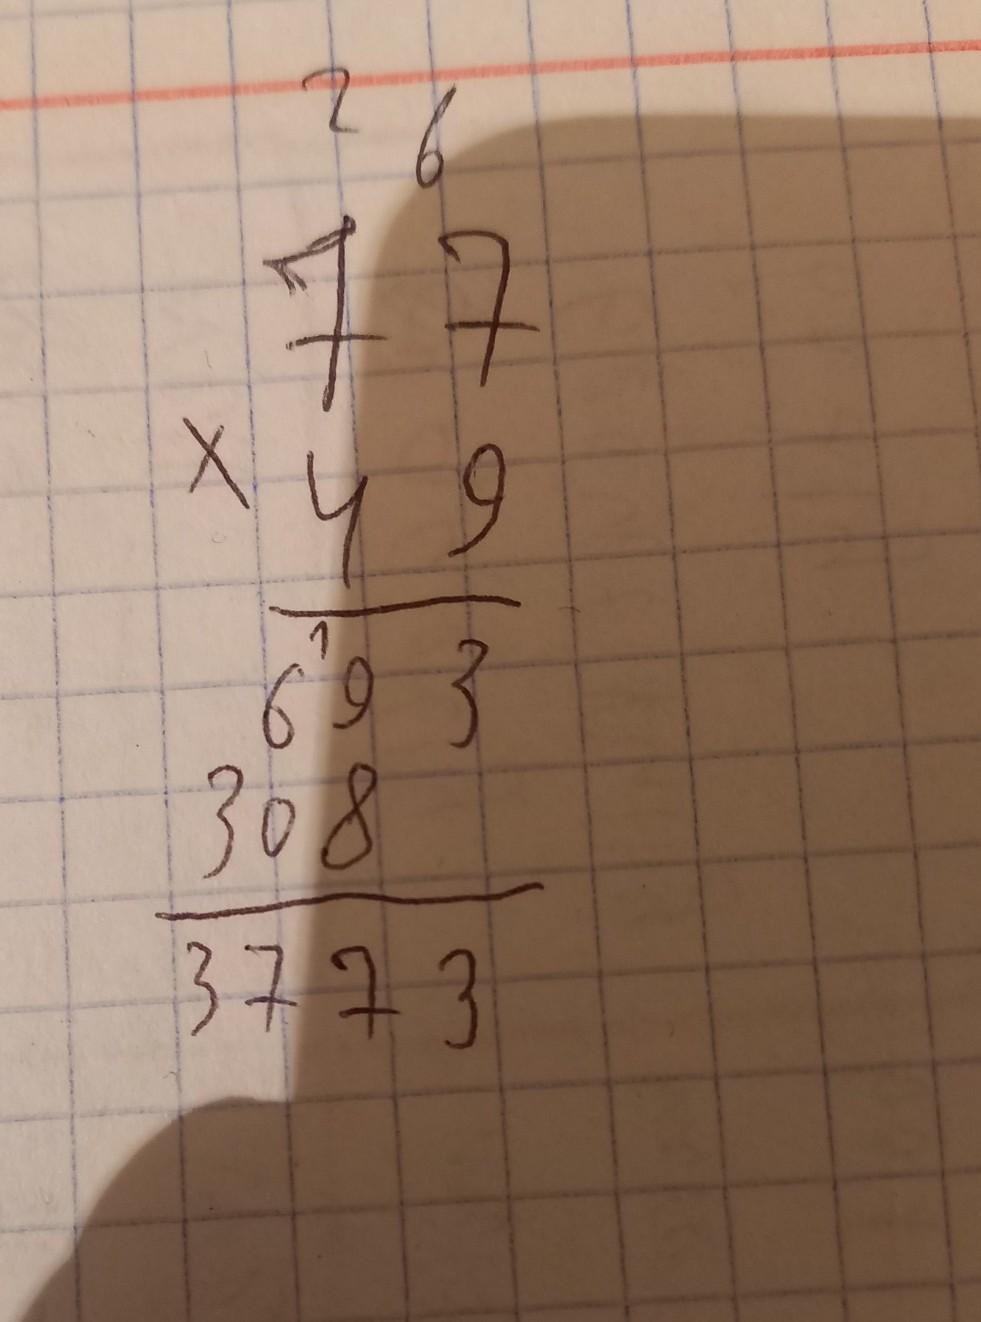 2 6
7 7
x 4 9
1
6 9 3
3 0 8
3 7 7 3